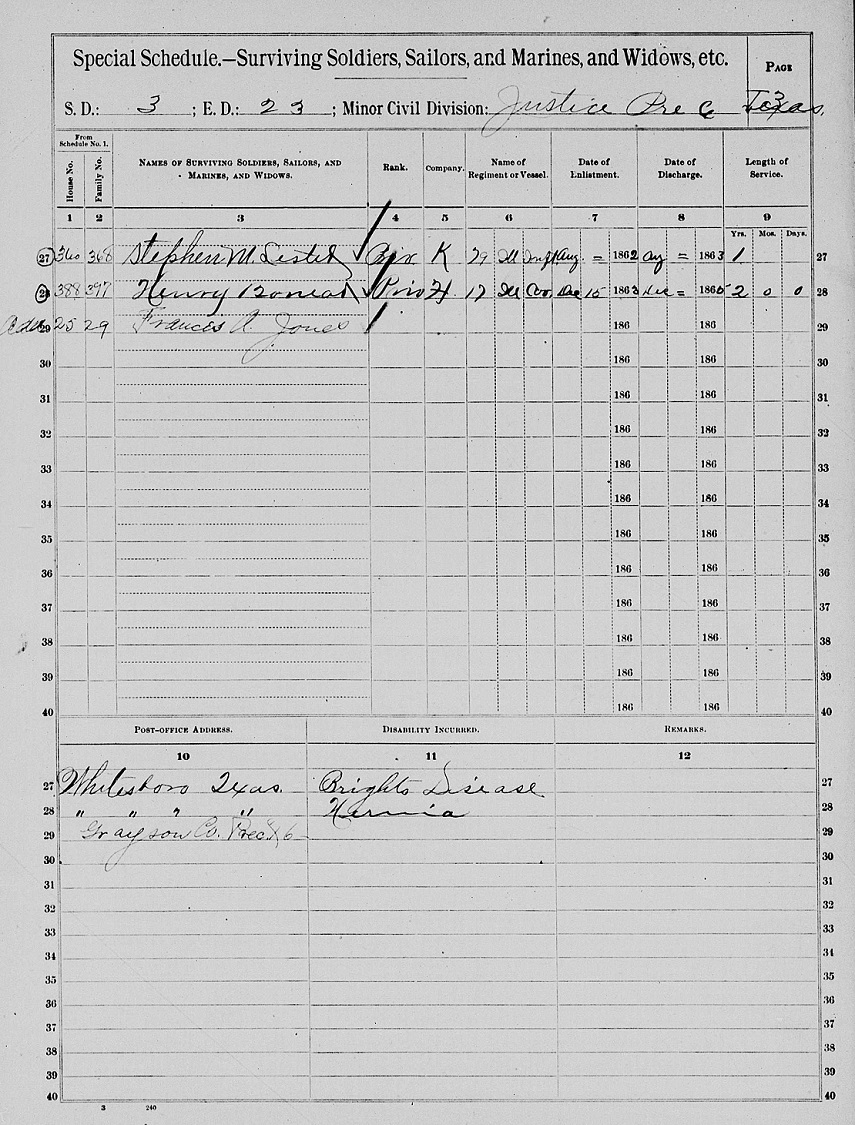 Special Schedule.—Surviving Soldiers, Sailors, and Marines, and Widows, etc.
PAGE
3
S. D.: 3 ; E. D.: 23 ; Minor Civil Division: Justice Pre 6 Texas.
From Schedule No. 1.
House No. Family No. NAMES OF SURVIVING SOLDIERS, SAILORS, AND MARINES, AND WIDOWS. Rank. Company. Name of Regiment or Vessel. Date of Enlistment. Date of Discharge. Length of Service.
1 2 3 4 5 6 7 8 9
Yrs. Mos. Days.
27 360 368 Stephen M K 79 Ill Aug = 1862 = 1863 1 27
388 397 Henry H 17 Ill Cav. Dec 15 1863 Dec = 1865 2 0 0 28
29 25 29 Frances A. Jones 186 186 29
30 186 186 30
31 186 186 31
32 186 186 32
33 186 186 33
34 186 186 34
35 186 186 35
36 186 186 36
37 186 186 37
38 186 186 38
39 186 186 39
40 186 186 40
POST-OFFICE ADDRESS. DISABILITY INCURRED. REMARKS.
10 11 12
27 Whitesboro Texas. Brights Disease 27
28 " " " " Hernia 28
29 Grayson Co. Prec. 6 29
30 30
31 31
32 32
33 33
34 34
35 35
36 36
37 37
38 38
39 39
40 40
3 240